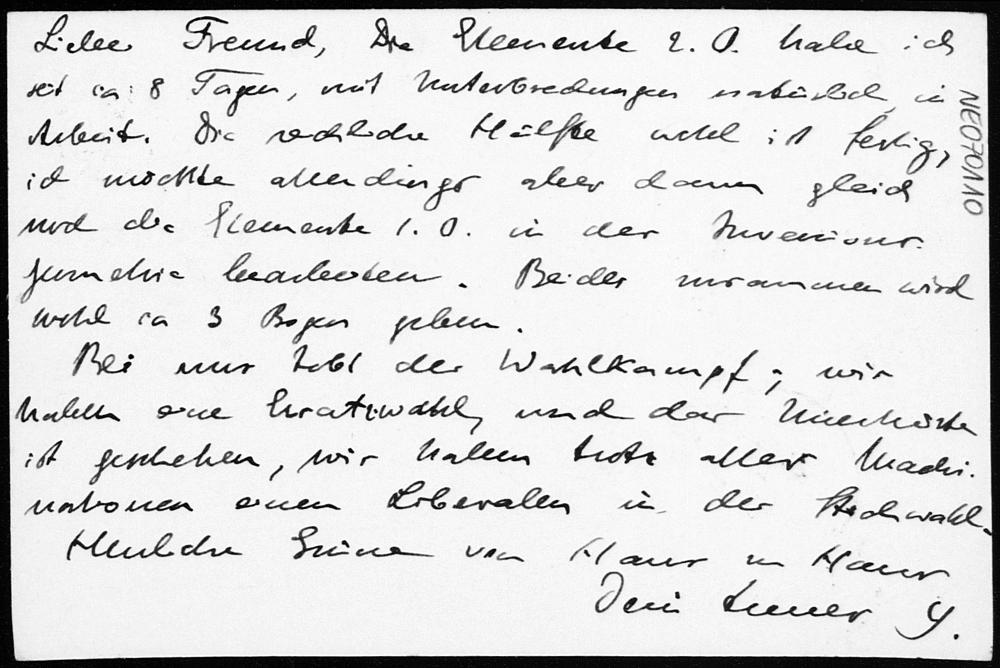 Lieber Freund, Die Elemente 2. O. habe ich
seit ca: 8 Tagen, mit Unterbrechungen natürlich, in
Arbeit. Die rechliche Hälfte wohl ist fertig,
ich möchte allerdings aber dann gleich
noch die Elemente 1. O. in der Inversions-
geometrie bearbeiten. Beides zusammen wird
wohl ca 3 Bogen geben.
Bei uns tobt der Wahlkampf; wir
haben eine Ersatzwahl, und das Unerhörte
ist geschehen, wir haben trotz aller Machi-
nationen einen Liberalen in der Stichwahl.
Herzliche Grüsse von Haus zu Haus
Dein
NEO70110